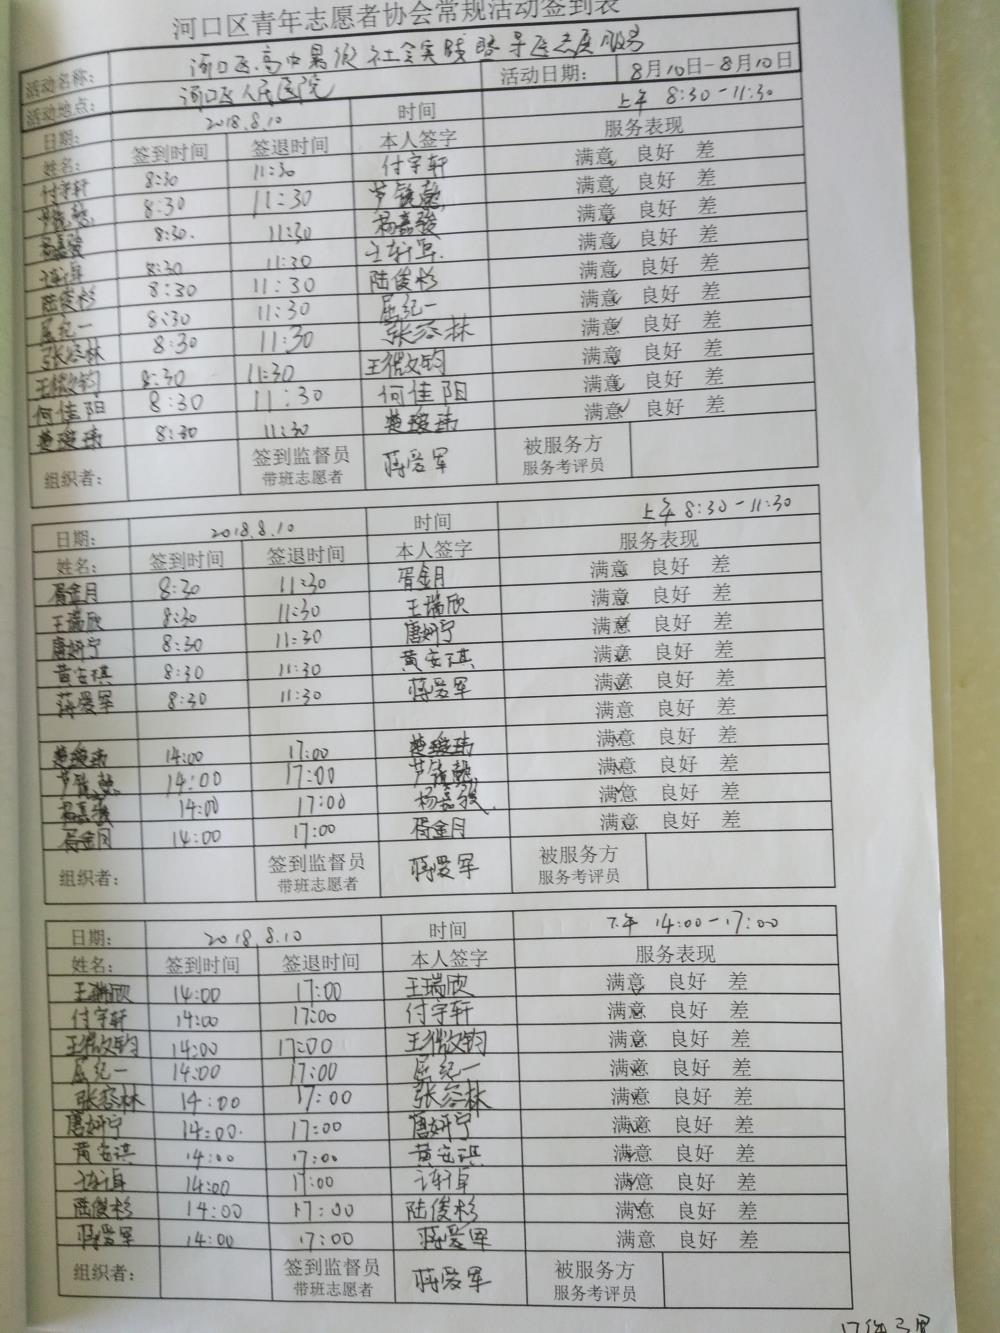 河口区青年志愿者协会常规活动签到表
活动名称： 河口区高中暑假社会实践暨导医志愿服务
活动地点： 河口区人民医院 活动日期： 8月10日-8月10日
日期： 2018.8.10 时间 上午 8:30-11:30
姓名： 签到时间 签退时间 本人签字 服务表现
付宇轩 8:30 11:30 付宇轩 满意 良好 差
8:30 11:30 满意 良好 差
杨嘉骏 8:30. 11:30 杨嘉骏 满意 良好 差
8:30 11:30 满意 良好 差
陆俊杉 8:30 11:30 陆俊杉 满意 良好 差
屈纪一 8:30 11:30 屈纪一 满意 良好 差
张容林 8:30 11:30 张容林 满意 良好 差
8:30 11:30 满意 良好 差
何佳阳 8:30 11:30 何佳阳 满意 良好 差
楚璇玮 8:30 11:30 楚璇玮 满意 良好 差
组织者： 签到监督员 带班志愿者 蒋爱军 被服务方 服务考评员
日期： 2018.8.10 时间 上午 8:30-11:30
姓名： 签到时间 签退时间 本人签字 服务表现
胥金月 8:30 11:30 胥金月 满意 良好 差
王瑞欣 8:30 11:30 王瑞欣 满意 良好 差
唐妍宁 8:30 11:30 唐妍宁 满意 良好 差
黄安琪 8:30 11:30 黄安琪 满意 良好 差
蒋爱军 8:30 11:30 蒋爱军 满意 良好 差
满意 良好 差
楚璇玮 14:00 17:00 楚璇玮 满意 良好 差
14:00 17:00 满意 良好 差
杨嘉骏 14:00 17:00 杨嘉骏. 满意 良好 差
胥金月 14:00 17:00 胥金月 满意 良好 差
组织者： 签到监督员 带班志愿者 蒋爱军 被服务方 服务考评员
日期： 2018.8.10 时间 下午 14:00-17:00
姓名： 签到时间 签退时间 本人签字 服务表现
王瑞欣 14:00 17:00 王瑞欣 满意 良好 差
付宇轩 14:00 17:00 付宇轩 满意 良好 差
14:00 17:00 满意 良好 差
屈纪一 14:00 17:00 屈纪一 满意 良好 差
张容林 14:00 17:00 张容林 满意 良好 差
唐妍宁 14:00. 17:00 唐妍宁 满意 良好 差
黄安琪 14:00 17:00 黄安琪 满意 良好 差
14:00 17:00 满意 良好 差
陆俊杉 14:00 17:00 陆俊杉 满意 良好 差
蒋爱军 14:00 17:00 蒋爱军 满意 良好 差
组织者： 签到监督员 带班志愿者 蒋爱军 被服务方 服务考评员